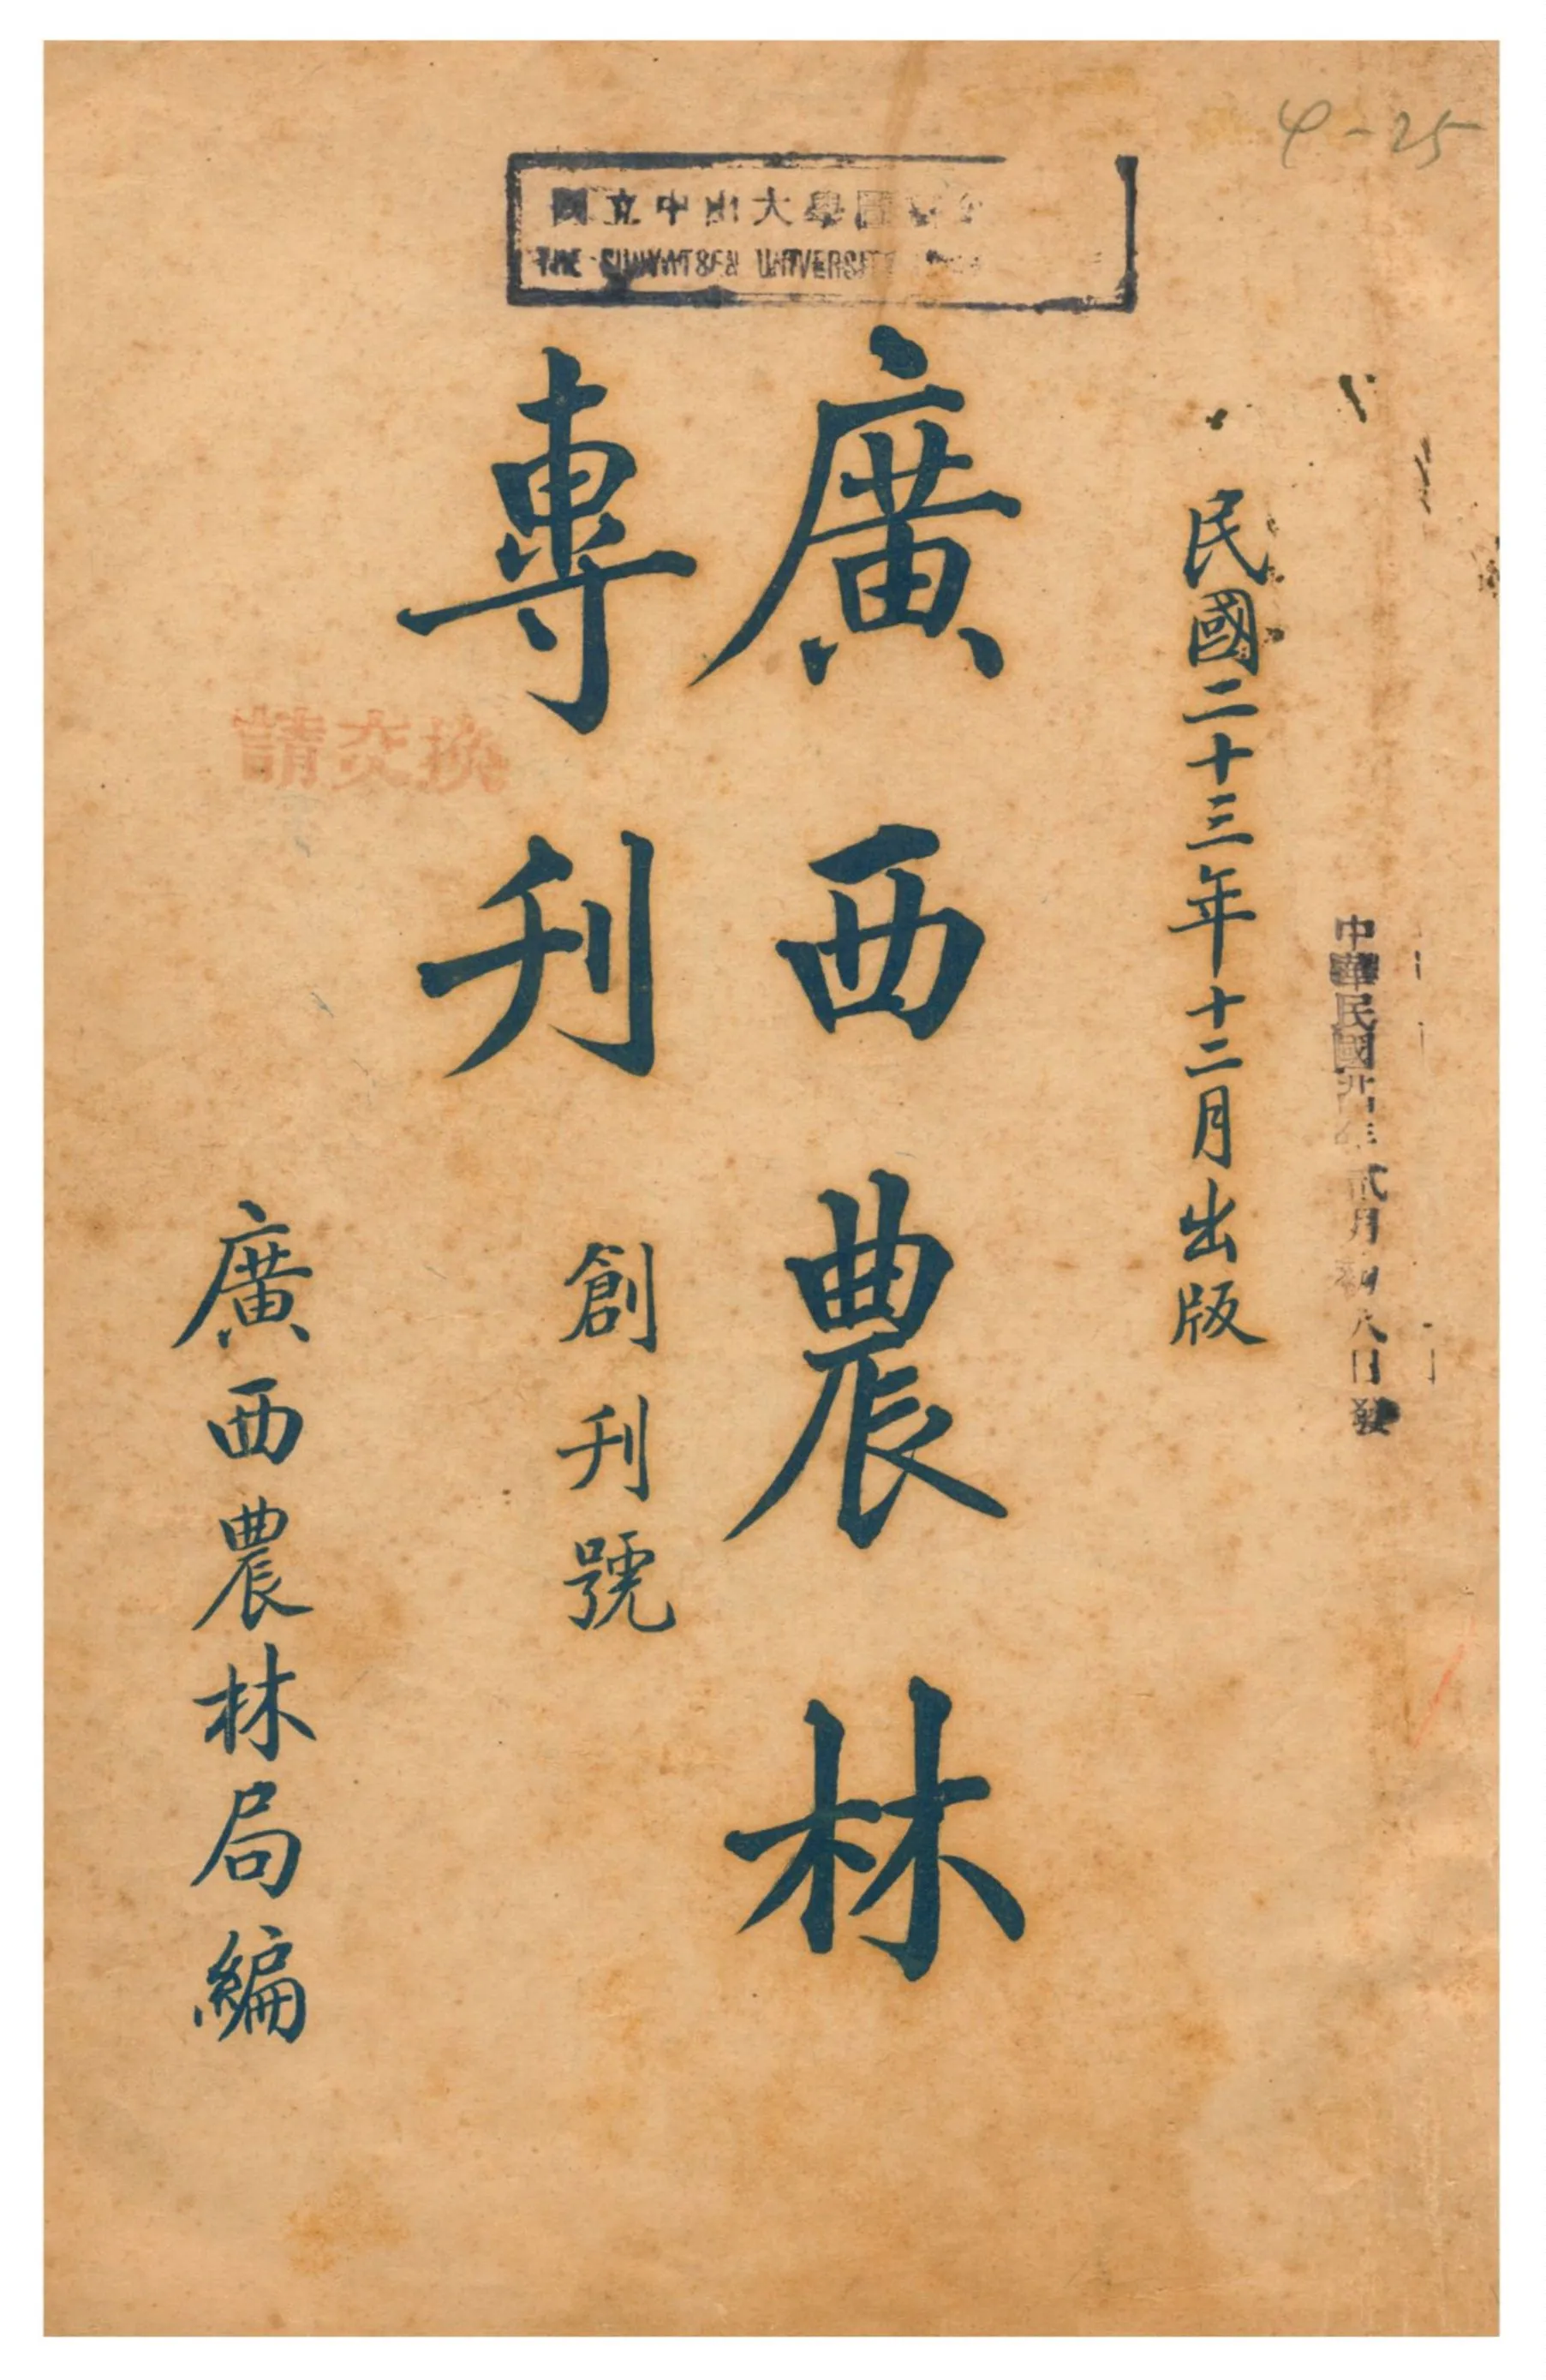 4-25
國立中山大學圖
THE SUNYATSEN UNIVERSITY
民國二十三年十二月出版
中華民國廿四年貳月初八日發
廣西農林
專刊
創刊號
請交換
廣西農林局編